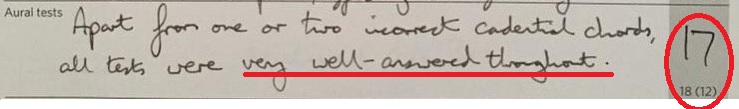 Aural tests Apart from one or two incorrect cadential chords,
all tests were very well-answered throughout.
17
18 (12)